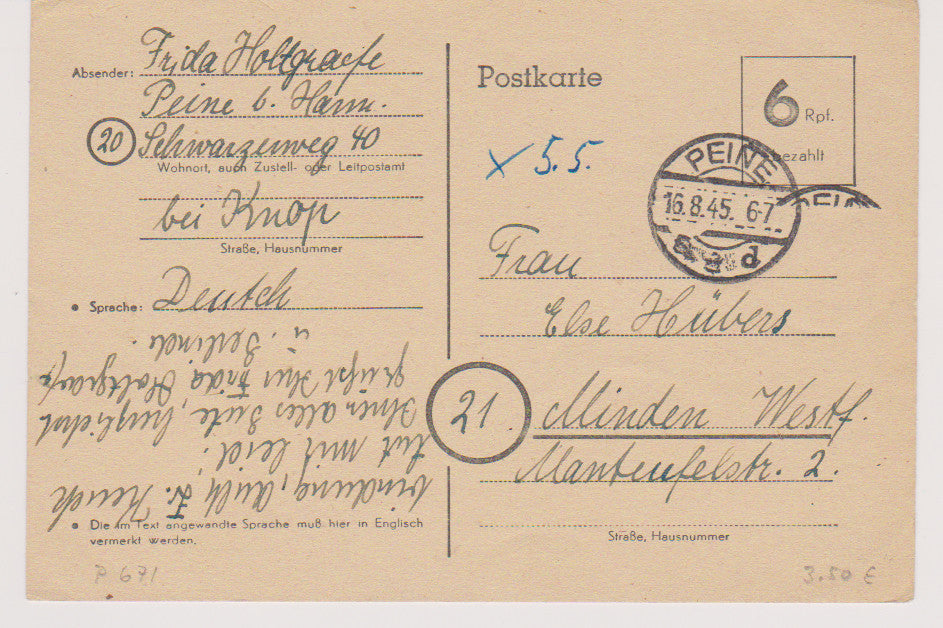 Absender: Frida Holtgraefe
Peine b. Hann.
20 Schwarzenweg 40
Wohnort, auch Zustell- oder Leitpostamt
bei Knop
Straße, Hausnummer
• Sprache: Deutch
bindung, auch Fr.
tut mir leid!
Ihnen alles Gute, herzlichst
grüßt Ihre Frida Holtgraefe
u. Gerlinde.
• Die im Text angewandte Sprache muß hier in Englisch
vermerkt werden.
P 671
Postkarte
6 Rpf.
bezahlt
x 5.5.
PEINE
16.8.45. 6-7
d
Frau
Else Hübers
21 Minden Westf.
Manteufelstr. 2.
Straße, Hausnummer
3.50 €